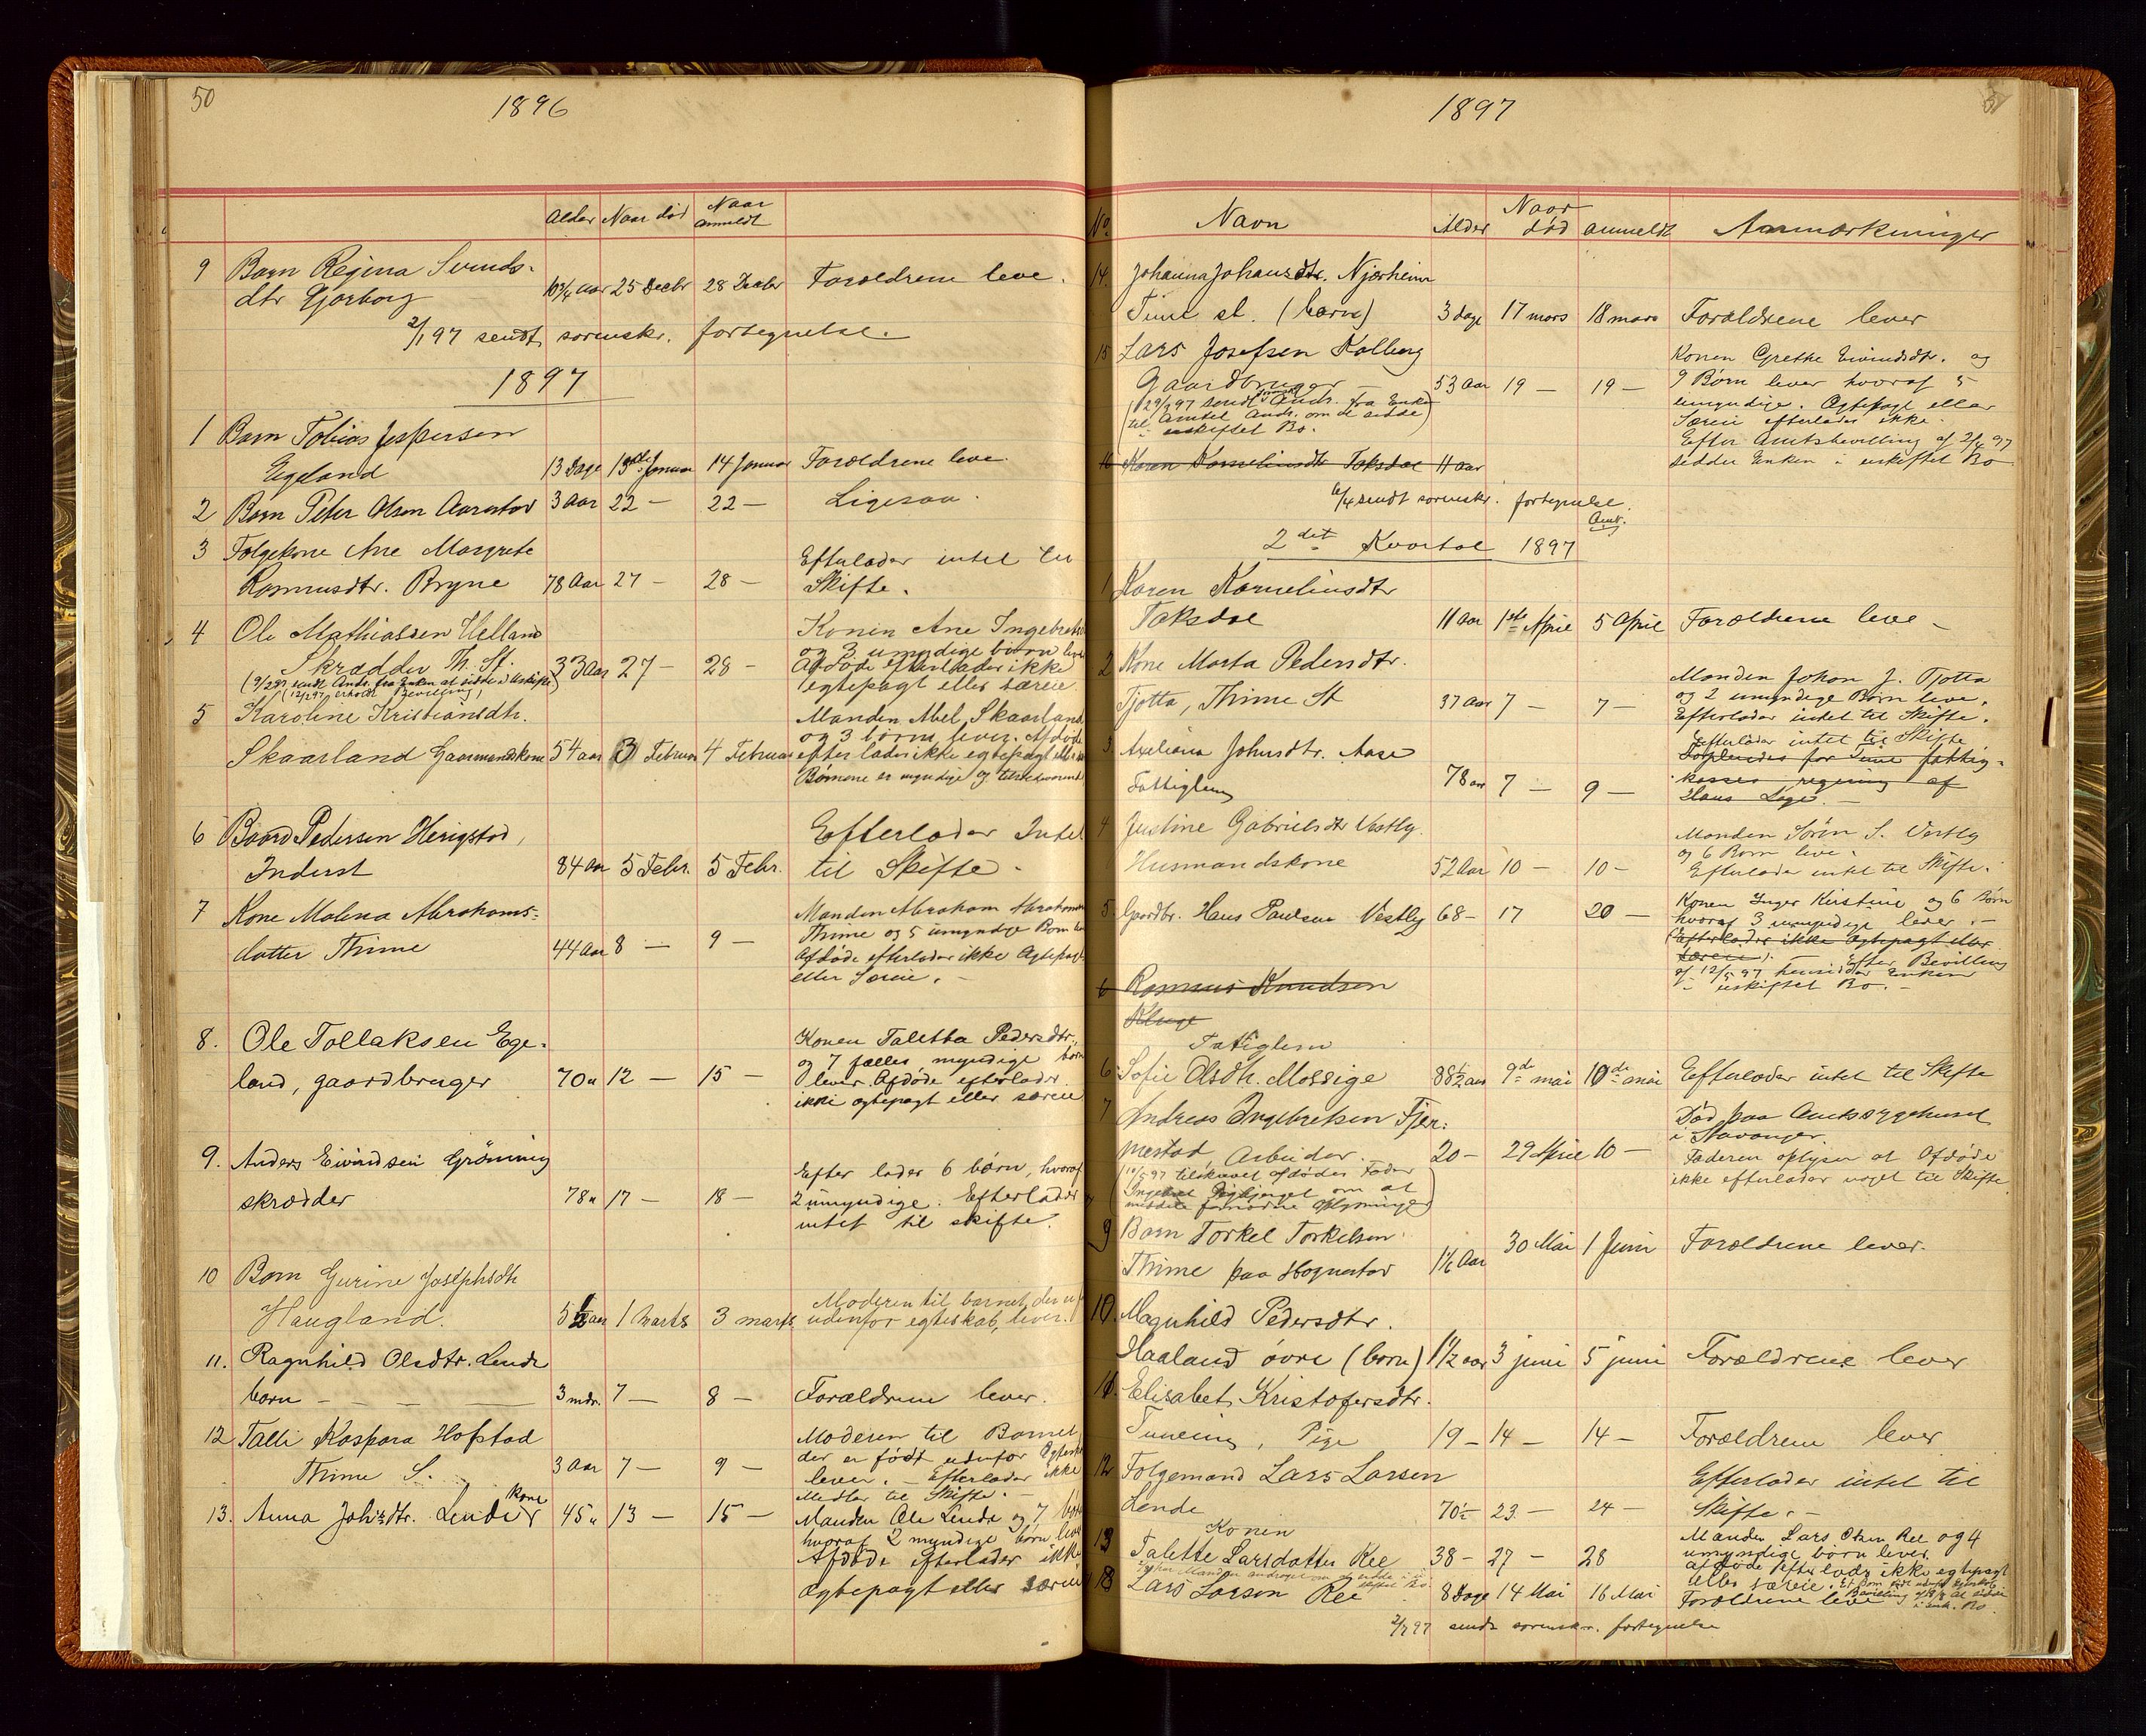 50
1896
Alder Naar død Naar anmeldt
9 Barn Regina Svends-
dtr Gjorborg 10 3/4 aar 25 Decbr 28 Decbr Forældrene leve.
2/1 97 sendt sorenskr. fortegnelse.
1897
1 Barn Tobias Jespersen
Egeland 13 Dage 13de Januar 14 Januar Forældrene leve
2 Barn Peter Olsen Aarestad 3 Aar 22 — 22 — Ligesaa.
3 Følgekone Ane Margrete
Rasmusdtr. Bryne 78 Aar 27 — 28 — Efterlader intet til
Skifte.
4 Ole Mathiassen Helland
Skrædder Th. St. 33 Aar 27 — 28 —
(9/2 97 sendt Andr. fra Enken at sidde i Uskifte)
(12/2 97 erholdt Bevilling)
Konen Ane Ingebrets
og 3 umyndige børn lever
Afdøde efterlader ikke
egtepagt eller særeie
5 Karoline Kristiansdtr.
Skaarland Gaarmandskone 54 aar 3 Februar 4 Februar
Manden Abel Skaarland
og 3 børn lever. Afdøde
efterlader ikke egtepagt eller
Børnene er myndige og tilstedeværende
6 Baard Pedersen Herigstad,
Inderst 84 Aar 5 Febr. 5 Febr.
Efterlader Intet
til Skifte.
7 Kone Malena Abrahams-
datter Thime 44 Aar 8 — 9 —
Manden Abraham Abrahamsen
Thime og 5 umyndige Børn lever
Afdøde efterlader ikke Ægtepagt
eller Særeie. —
8. Ole Tollaksen Ege-
land, gaardbruger 70 " 12 — 15 —
Konen Taletta Pedersdtr.
og 7 fælles myndige børn
lever. Afdøde efterlader
ikke egtepagt eller særeie
9. Anders Eivindsen Gröning
skrædder 78 " 17 — 18 —
Efter lader 6 børn, hvoraf
2 umyndige. Efterlader
intet til skifte.
10 Barn Gurine Josephsdtr
Haugland. 5 1/2 aar 1 marts 3 marts
Moderen til barnet, der er f
udenfor egteskab, lever.
11. Ragnhild Olsdtr. Lende
barn — — — — 3 mdr. 7 — 8 — Forældrene lever.
12 Talle Kaspara Hofstad
Thime S. 3 Aar 7 — 9 —
Moderen til Barnet,
der er født udenfor Ægtesk
lever. — Efterlader ikke
Midler til Skifte. —
13. Anna Johsdtr. Lende kone 45 " 13 — 15 —
Manden Ole Lende og 7 børn
hvoraf 2 myndige børn lever
Afdøde efterlader ikke
ægtepagt eller særeie
1897
No. Navn Alder Naar død anmeldt Anmærkninger
14. Johanna Johansdtr. Njærheim
Time st. (barn) 3 dage 17 mars 18 mars Forældrene lever
15 Lars Josefsen Kalberg
Gaardbruger — 53 Aar 19 — 19 —
(29/3 97 sendt Andr. fra Enke
til Amtet Andr. om at sidde
i uskiftet Bo.)
Konen Grethe Eivindsdtr. og
9 Børn lever hvoraf 5
umyndige. Ægtepagt eller
Særeie efterlades ikke.
Efter Amtsbevilling af 2/4 97
sidder Enken i uskiftet Bo
16 Karen Kornelinsdtr Taksdal 11 aar
6/4 sendt sorenskr. fortegnelse.
Anm.
2det Kvartal 1897
1 Karen Kornelinsdtr
Taksdal 11 aar 1ste April 5 April Forældrene leve —
2 Kone Marta Pedersdtr.
Tjotta, Thime St 37 Aar 7 — 7 —
Manden Johan J. Tjotta
og 2 umyndige Børn leve.
Efterlader intet til Skifte.
3 Axeliana Johnsdtr. Aase
Fattiglem 78 aar 7 — 9 —
Efterlader intet til Skifte
Forpleiedes for Time fattig-
kasses regning af
Hans Lage. —
4 Justine Gabrielsdtr Vestly.
Husmandskone 52 Aar 10 — 10 —
Manden Sören S. Vestly
og 6 Børn leve.
Efterlader intet til Skifte.
5 Gaardbr. Hans Paulsen Vestly 68 — 17 20 —
Konen Inger Kirstine og 6 Børn
hvoraf 3 umyndige lever. —
(Efterlader ikke Ægtepagt eller
Særeie). — Efter Bevilling
af 12/5 97 hensidder Enken
i uskiftet Bo. —
6 Rasmus Knudsen
Kluge
Fatiglem
6 Sofie Olsdtr. Mossige 88 1/2 aar 9de mai 10de mai Efterlader intet til Skifte
7 Andreas Ingebretsen Fjer-
mestad, Arbeider. 20 — 29 April 10 —
(11/5 97 tilskrevet afdødes Fader
Ingebret om at
meddele fornødne Oplysninger)
Død paa Amtssygehuset
i Stavanger.
Faderen oplyser at Afdøde
ikke efterlader noget til Skifte
9 Barn Torkel Torkelsen
Thime paa Hognestad 1 1/2 Aar 30 Mai 1 Juni Forældrene lever.
10. Magnhild Pedersdtr.
Haaland övre (barn) 1 1/2 aar 3 juni 5 juni Forældrene lever
11. Elisabet Kristofersdtr.
Tunheim, Pige 19 — 14 — 14 — Forældrene lever
12 Følgemand Lars Larsen
Lende 70 — 23 — 24 —
Efterlader intet til
Skifte. —
13 Konen
Talette Larsdatter Ree 38 — 27 — 28
Manden Lars Olsen Ree og 4
umyndige børn lever.
Afdøde efterlods ikke egtepagt
eller særeie.
18 Lars Larson Ree 8 Dage 14 Mai 16 Mai Forældrene leve
2/7 97 sendt sorenskr. fortegnelse